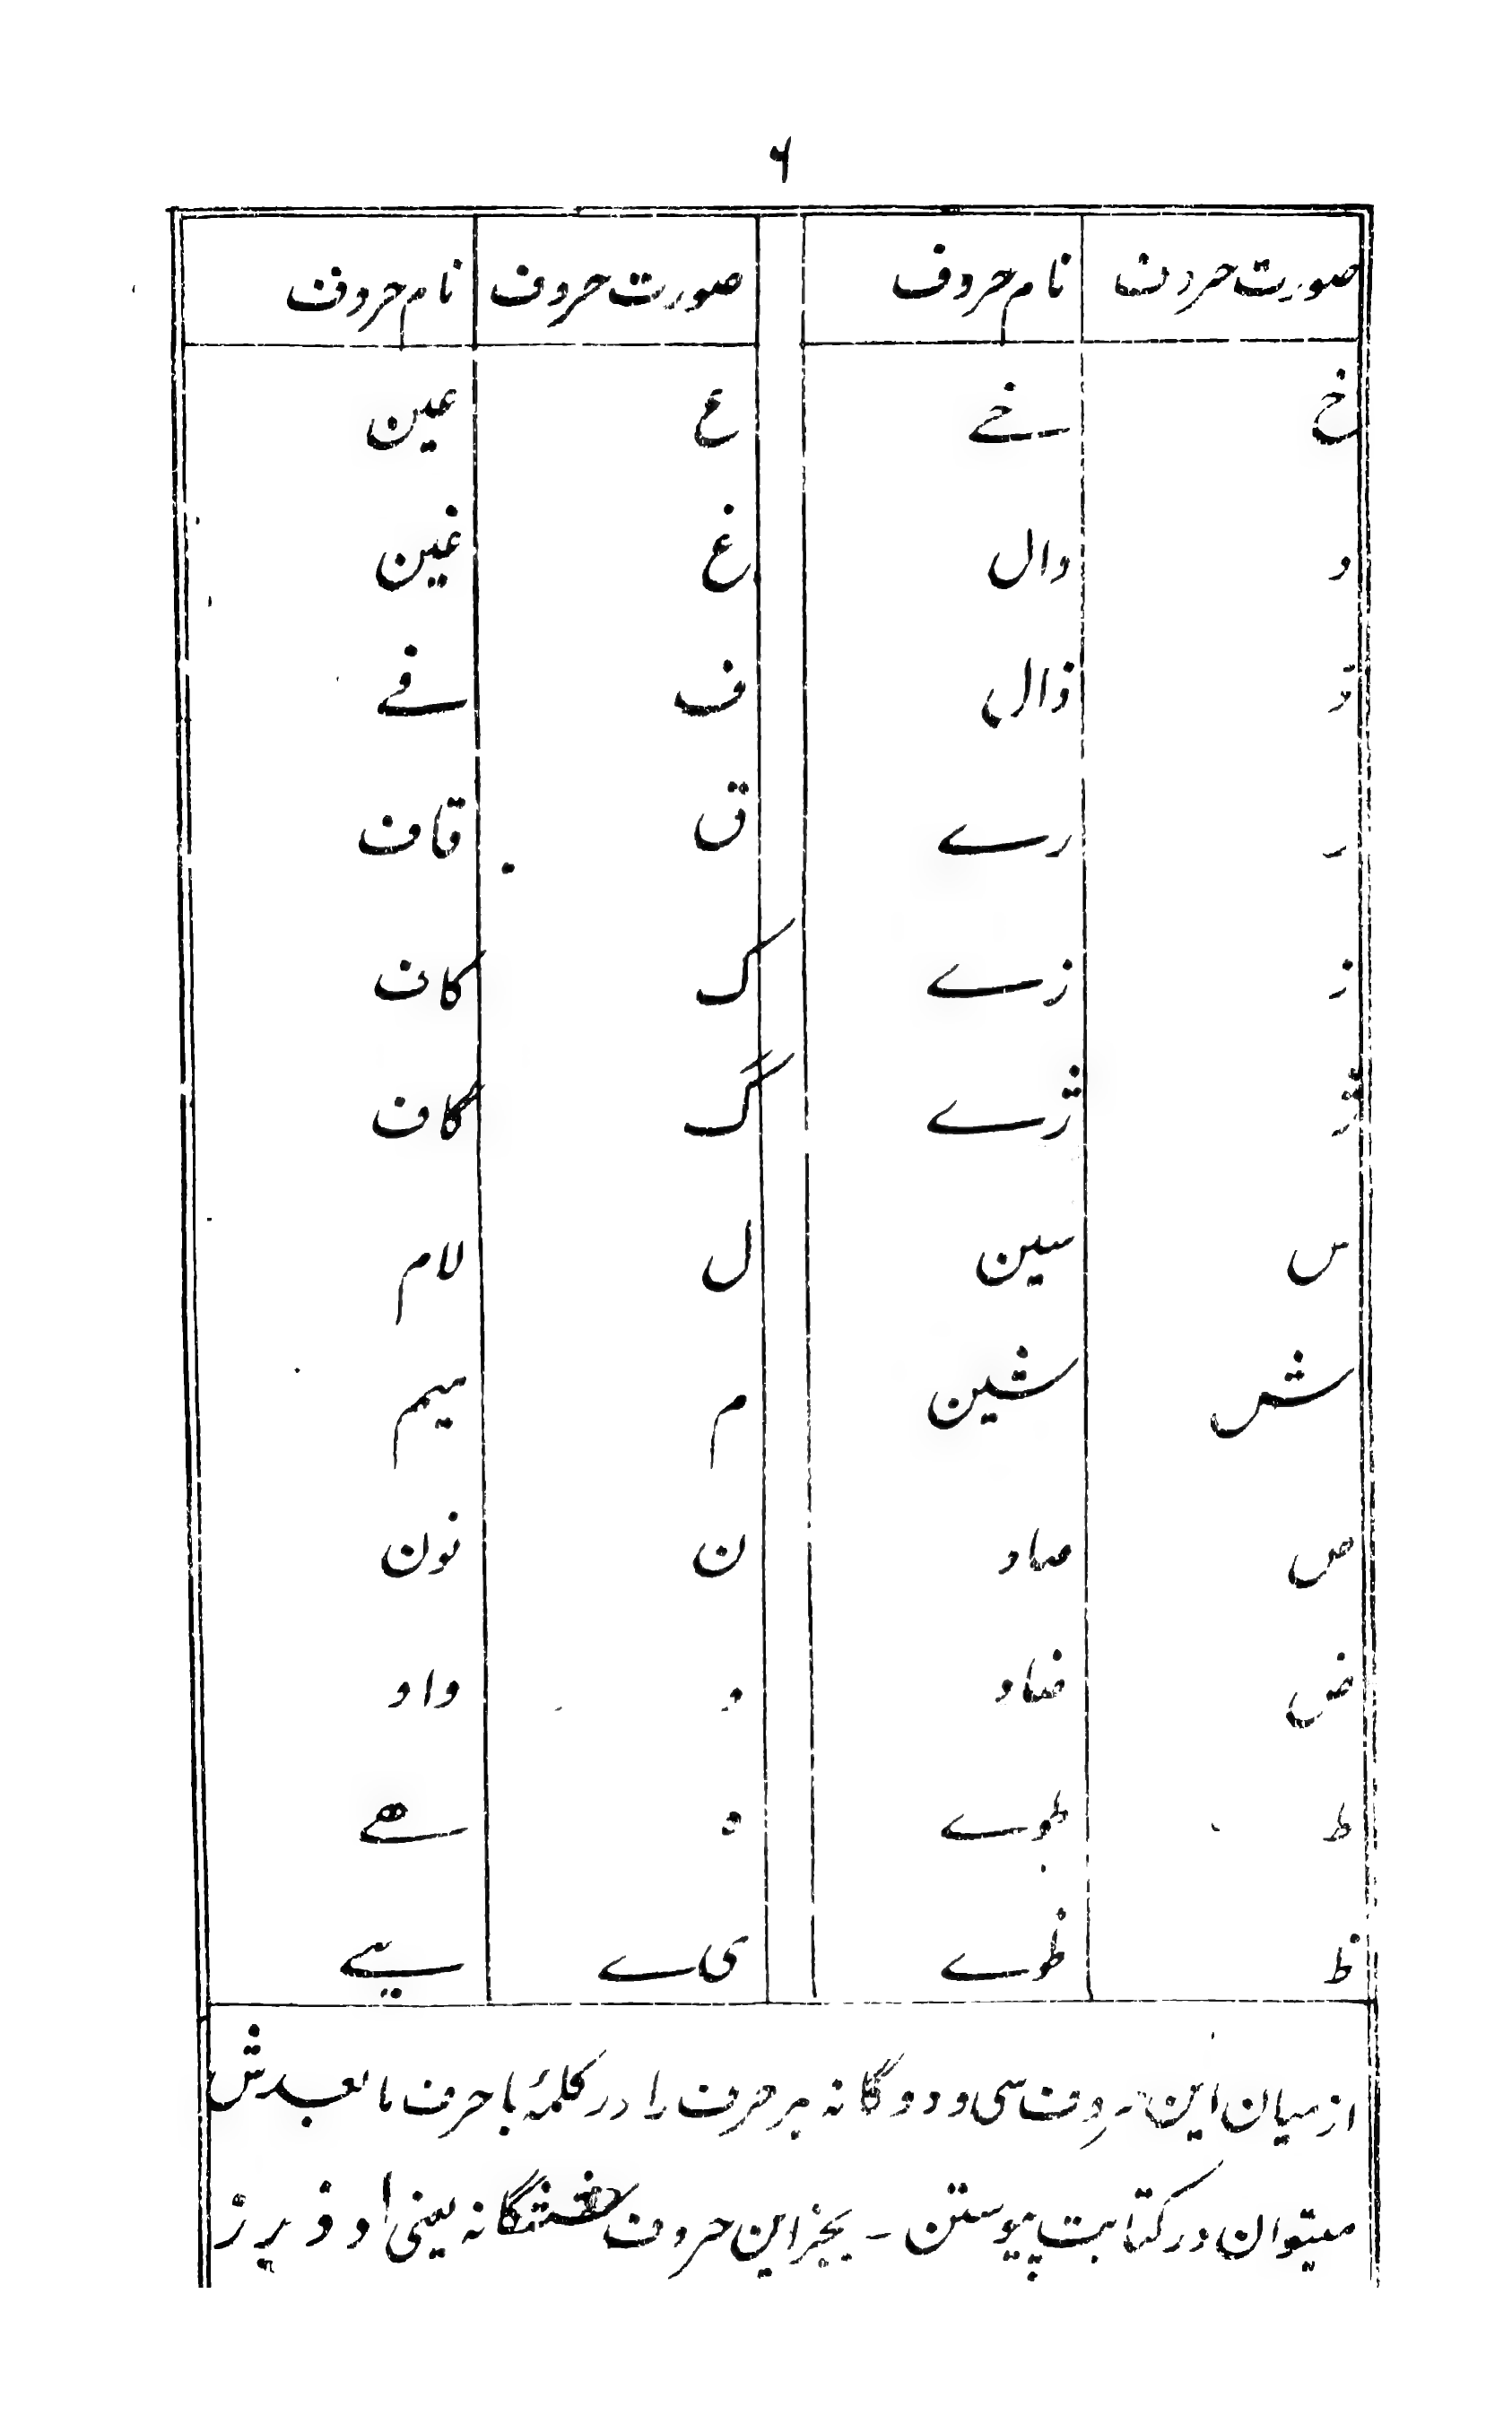 ۶
صورت حروف نام حروف صورت حروف نام حروف
خ خے ع عین
د دال غ غین
ذ ذال ف فے
ر رے ق قاف
ز زے ک کاف
ژ ژے گ گاف
س سین ل لام
ش شین م میم
ص صاد ن نون
ض ضاد و واو
ط طوے ہ ھے
ظ ظوے ی ے یے
از میان این حروف سی و دو گانہ ہر حرف را در کلمۂ با حرف ما بعدش
میتوان در کتابت پیوستن ۔ بجز این حروف ہشتگانہ یعنی ا د ذ ر ز